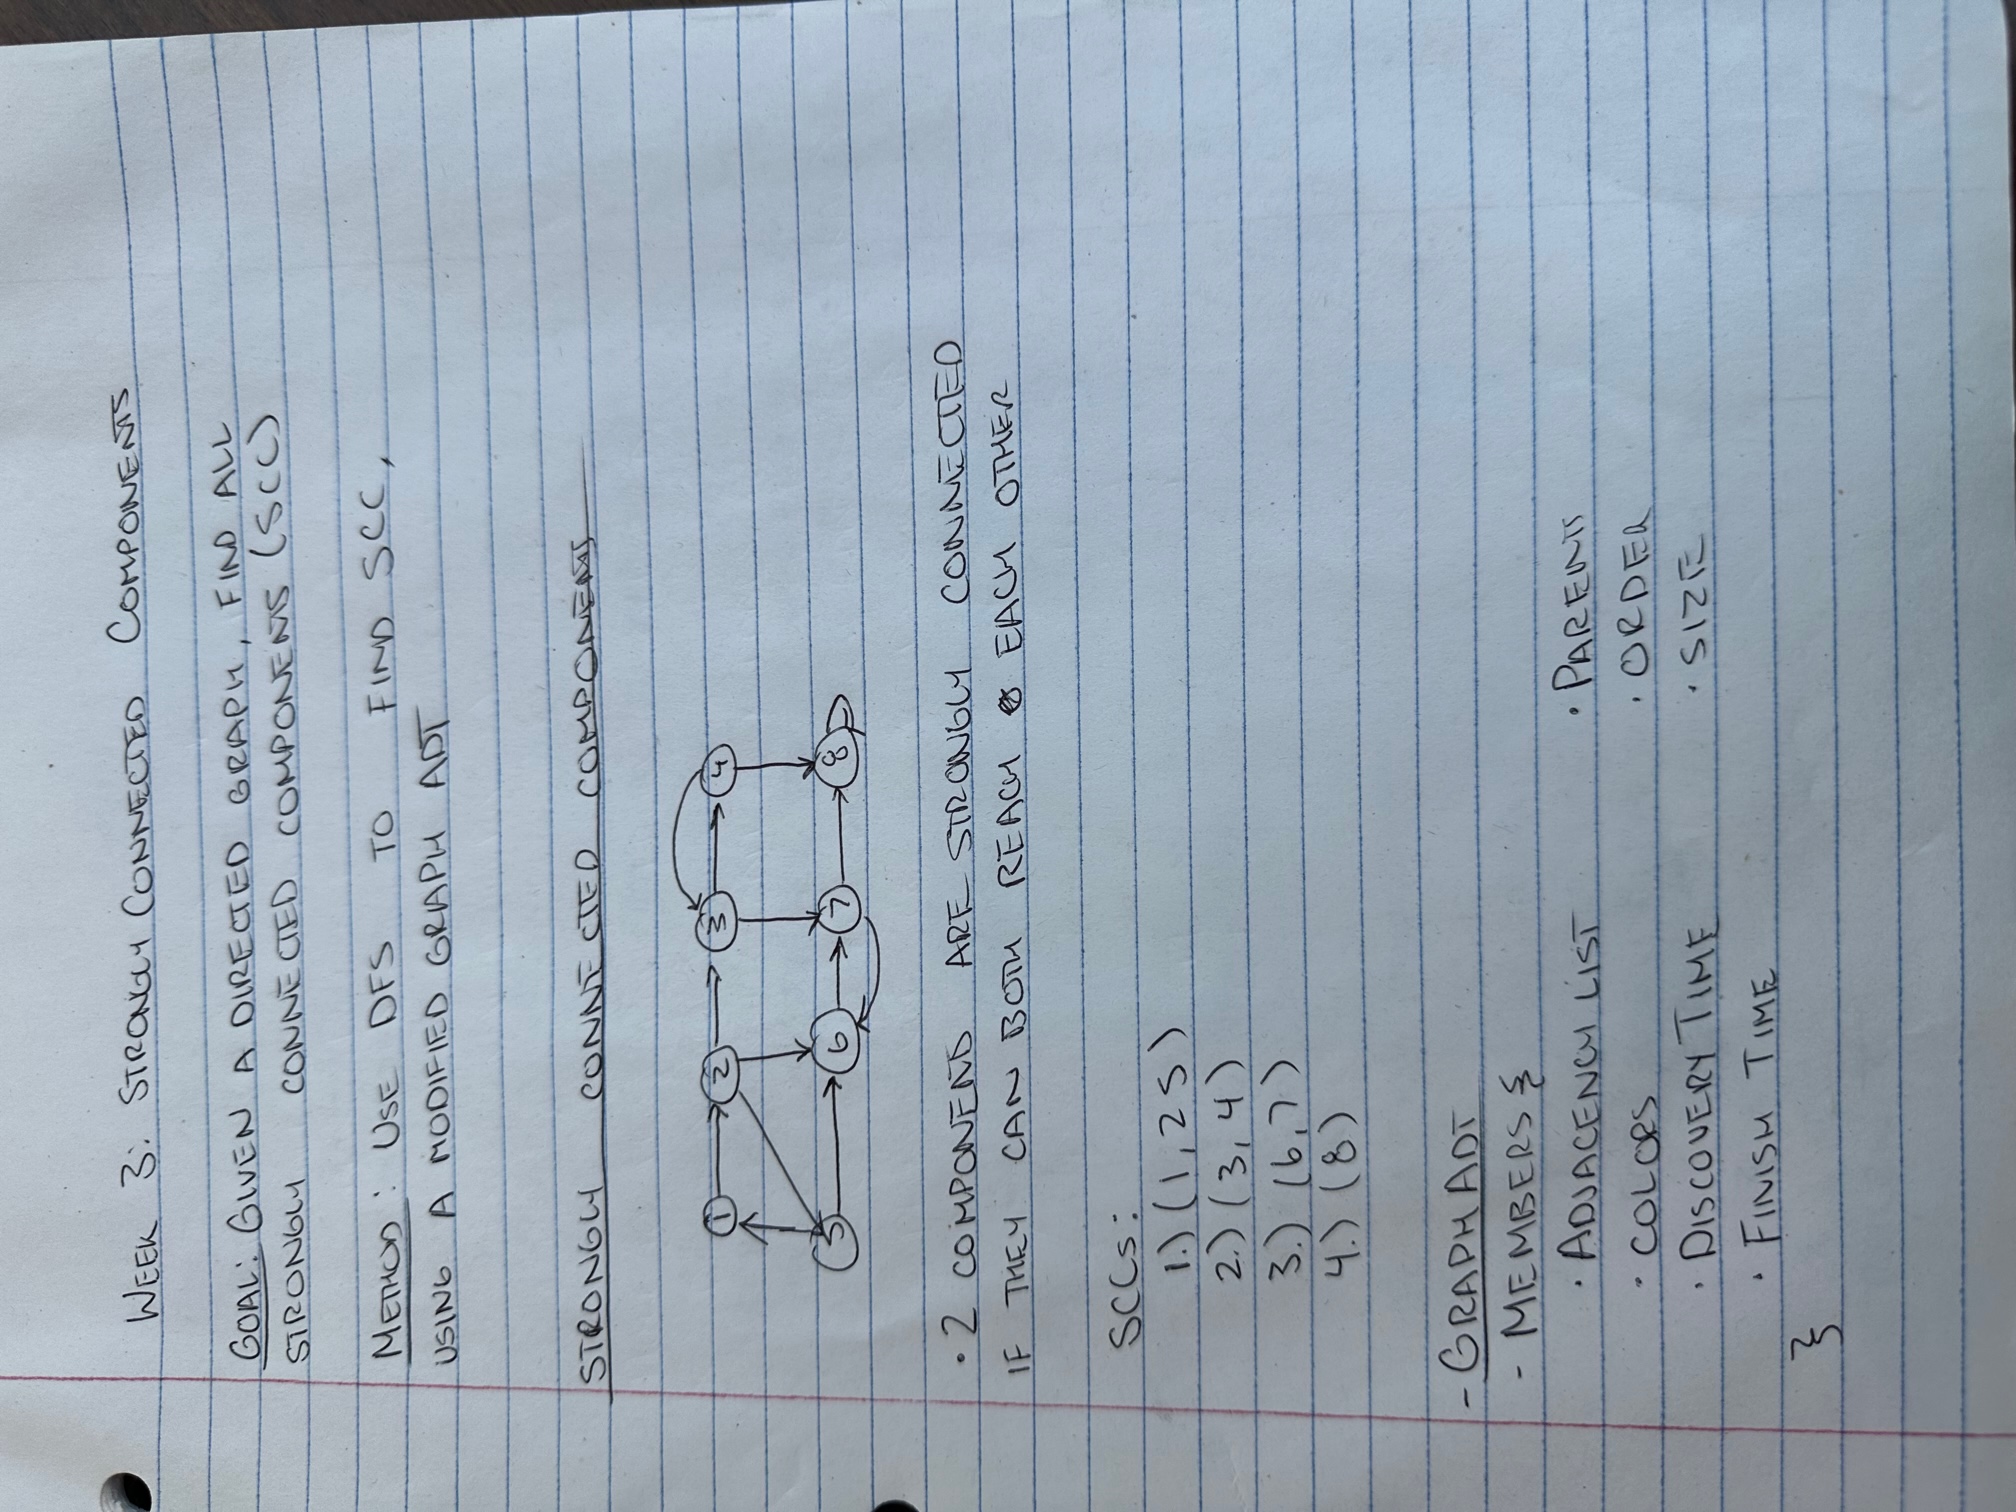 WEEK 3: STRONGLY CONNECTED COMPONENTS
GOAL: GIVEN A DIRECTED GRAPH, FIND ALL
STRONGLY CONNECTED COMPONENTS (SCC)
METHOD: USE DFS TO FIND SCC,
USING A MODIFIED GRAPH ADT
STRONGLY CONNECTED COMPONENTS
1 2 3 4
5 6 7 8
• 2 COMPONENTS ARE STRONGLY CONNECTED
IF THEY CAN BOTH REACH EACH OTHER
SCCs:
1.) (1, 2 5)
2.) (3, 4)
3.) (6, 7)
4.) (8)
- GRAPH ADT
- MEMBERS {
• ADJACENCY LIST • PARENTS
• COLORS • ORDER
• DISCOVERY TIME • SIZE
• FINISH TIME
}